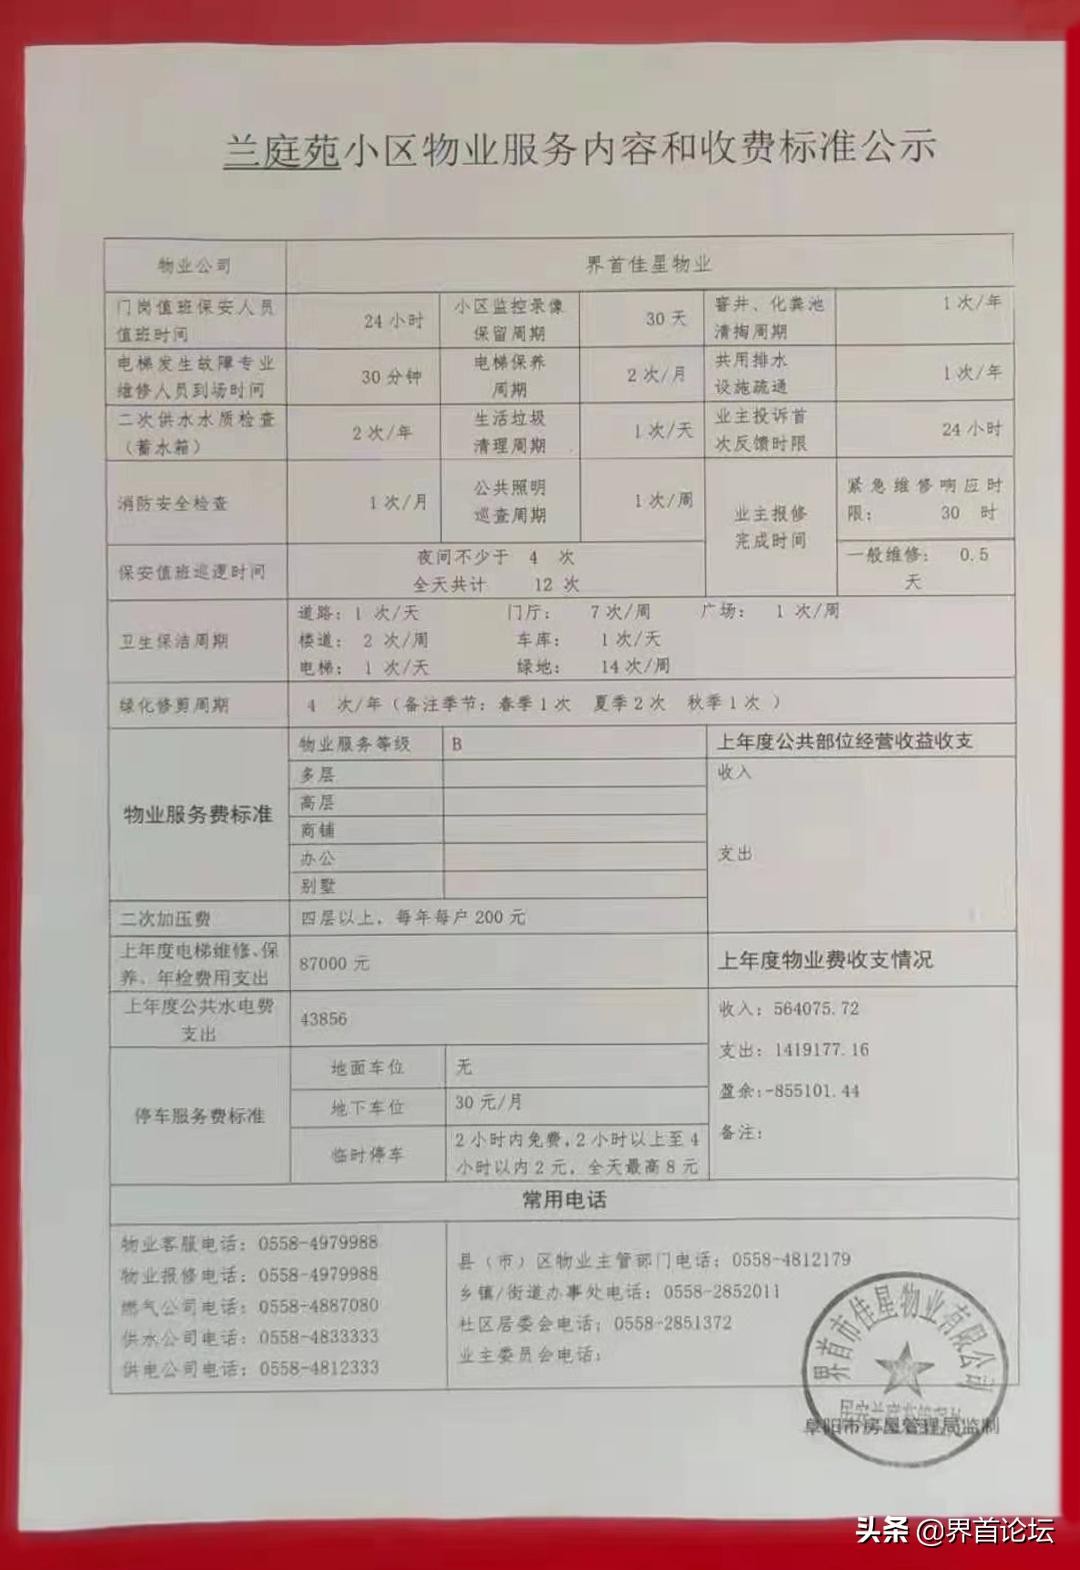 兰庭苑小区物业服务内容和收费标准公示
物业公司
界首佳星物业
门岗值班保安人员
值班时间
24 小时
小区监控录像
保留周期
30 天
窨井、化粪池
清掏周期
1 次/年
电梯发生故障专业
维修人员到场时间
30 分钟
电梯保养
周期
2 次/月
共用排水
设施疏通
1 次/年
二次供水水质检查
（蓄水箱）
2 次/年
生活垃圾
清理周期
1 次/天
业主投诉首
次反馈时限
24 小时
消防安全检查
1 次/月
公共照明
巡查周期
1 次/周
业主报修
完成时间
紧急维修响应时
限： 30 时
一般维修： 0.5
天
保安值班巡逻时间
夜间不少于 4 次
全天共计 12 次
卫生保洁周期
道路：1 次/天 门厅： 7 次/周 广场： 1 次/周
楼道： 2 次/周 车库： 1 次/天
电梯： 1 次/天 绿地： 14 次/周
绿化修剪周期
4 次/年（备注季节：春季 1 次 夏季 2 次 秋季 1 次 ）
物业服务费标准
物业服务等级
B
多层
高层
商铺
办公
别墅
上年度公共部位经营收益收支
收入
支出
二次加压费
四层以上，每年每户 200 元
上年度电梯维修、保
养、年检费用支出
87000 元
上年度物业费收支情况
上年度公共水电费
支出
43856
收入：564075.72
支出：1419177.16
盈余:-855101.44
备注：
停车服务费标准
地面车位
无
地下车位
30 元/月
临时停车
2 小时内免费，2 小时以上至 4
小时以内 2 元，全天最高 8 元
常用电话
物业客服电话：0558-4979988
物业报修电话：0558-4979988
燃气公司电话：0558-4887080
供水公司电话：0558-4833333
供电公司电话：0558-4812333
县（市）区物业主管部门电话：0558-4812179
乡镇/街道办事处电话：0558-2852011
社区居委会电话：0558-2851372
业主委员会电话：
界首市佳星物业有限公司
阜阳市房屋管理局监制
头条 @界首论坛